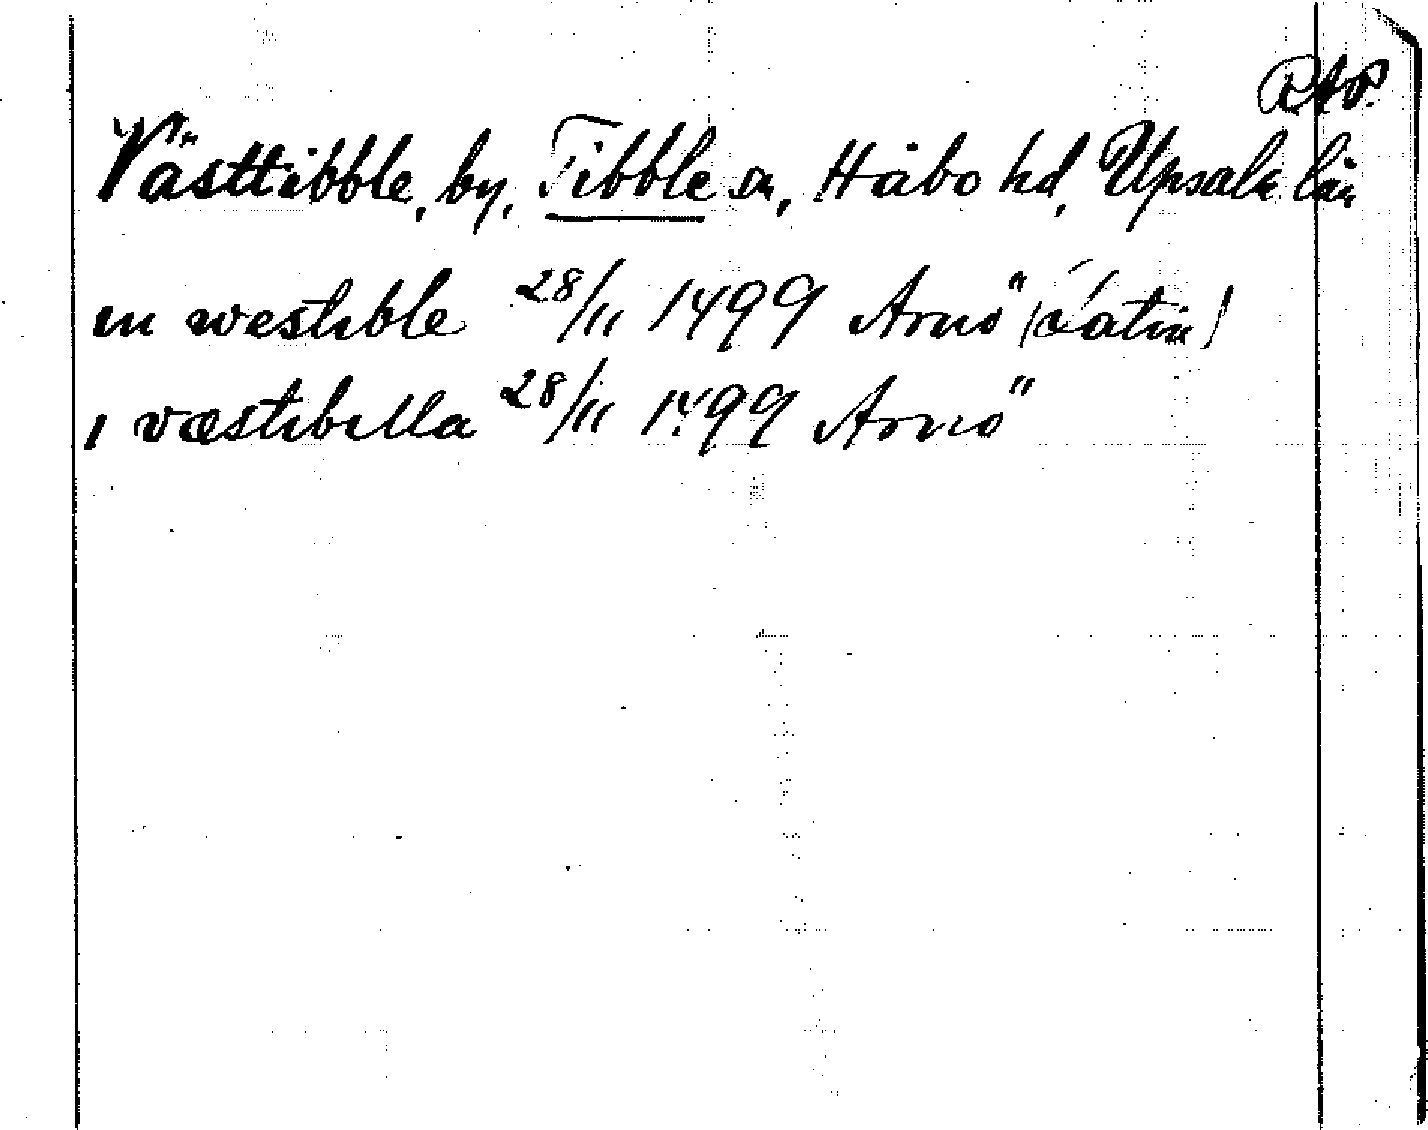 RAP.
Västtibble, by, Tibble sn, Håbo hd, Upsala län
in westible 28/11 1499 Arnö (Latin)
i væstibilla 28/11 1499 Arnö